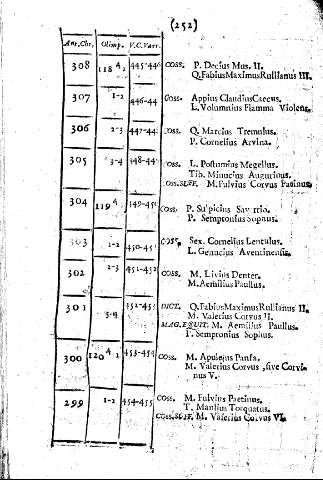 (252)
Ant.Chr. Olimp. V.C.Varr.
308 118 4. 445-446 COSS. P. Decius Mus. II.
Q.FabiusMaximusRullianus III.
307 1-2 446-447 COSS. Appius ClaudiusCaecus.
L. Volumnius Flamma Violens.
306 2-3 447-448 COSS. Q. Marcius Tremulus.
P. Cornelius Arvina.
305 3-4 448-449 COSS. L. Postumius Megellus.
Tib. Minucius Augurinus.
COSS.SUFF. M.Fulvius Corvus Paetinus.
304 119 4. 449-450 COSS. P. Sulpicius Saverrio.
P. Sempronius Sophus.
303 1-2 450-451 COSS. Sex. Cornelius Lentulus.
L. Genucius Aventinensis.
302 2-3 451-452 COSS. M. Livius Denter.
M.Aemilius Paullus.
301 3-4 452-453 DICT. Q.FabiusMaximusRullianus II.
M. Valerius Corvus II.
MAG.EQUIT. M. Aemilius Paullus.
T. Sempronius Sophus.
300 120 4 1 453-454 COSS. M. Apulejus Pansa.
M. Valerius Corvus, sive Corvi-
nus V.
299 1-2 454-455 COSS. M. Fulvius Paetinus.
T. Manlius Torquatus.
COSS.SUFF. M. Valerius Corvus VI.